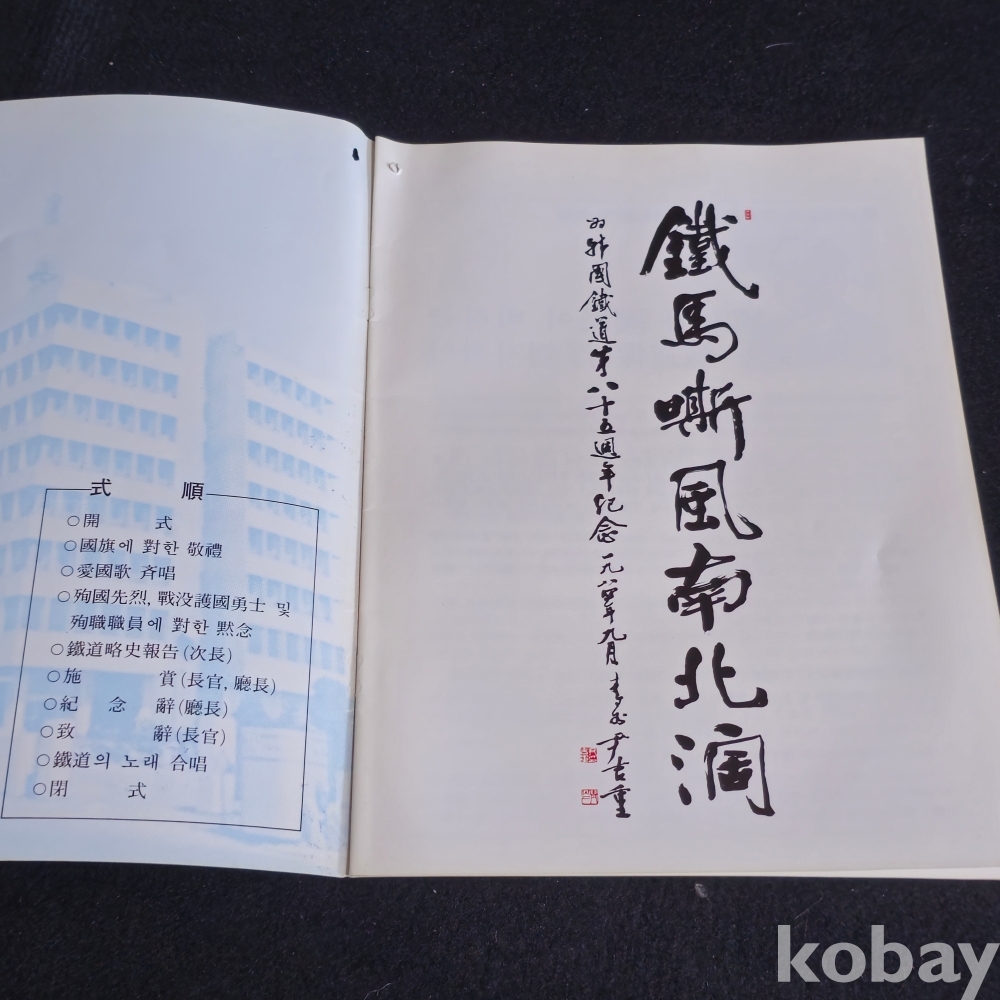 式 順
○開 式
○國旗에 對한 敬禮
○愛國歌 斉唱
○殉國先烈, 戰没護國勇士 및
殉職職員에 對한 黙念
○鐵道略史報告(次長)
○施 賞(長官, 廳長)
○紀 念 辭(廳長)
○致 辭(長官)
○鐵道의 노래 合唱
○閉 式
鐵馬嘶風南北濶
為韓國鐵道第八十五週年紀念 一九八四年九月 青谷 尹吉重
kobay